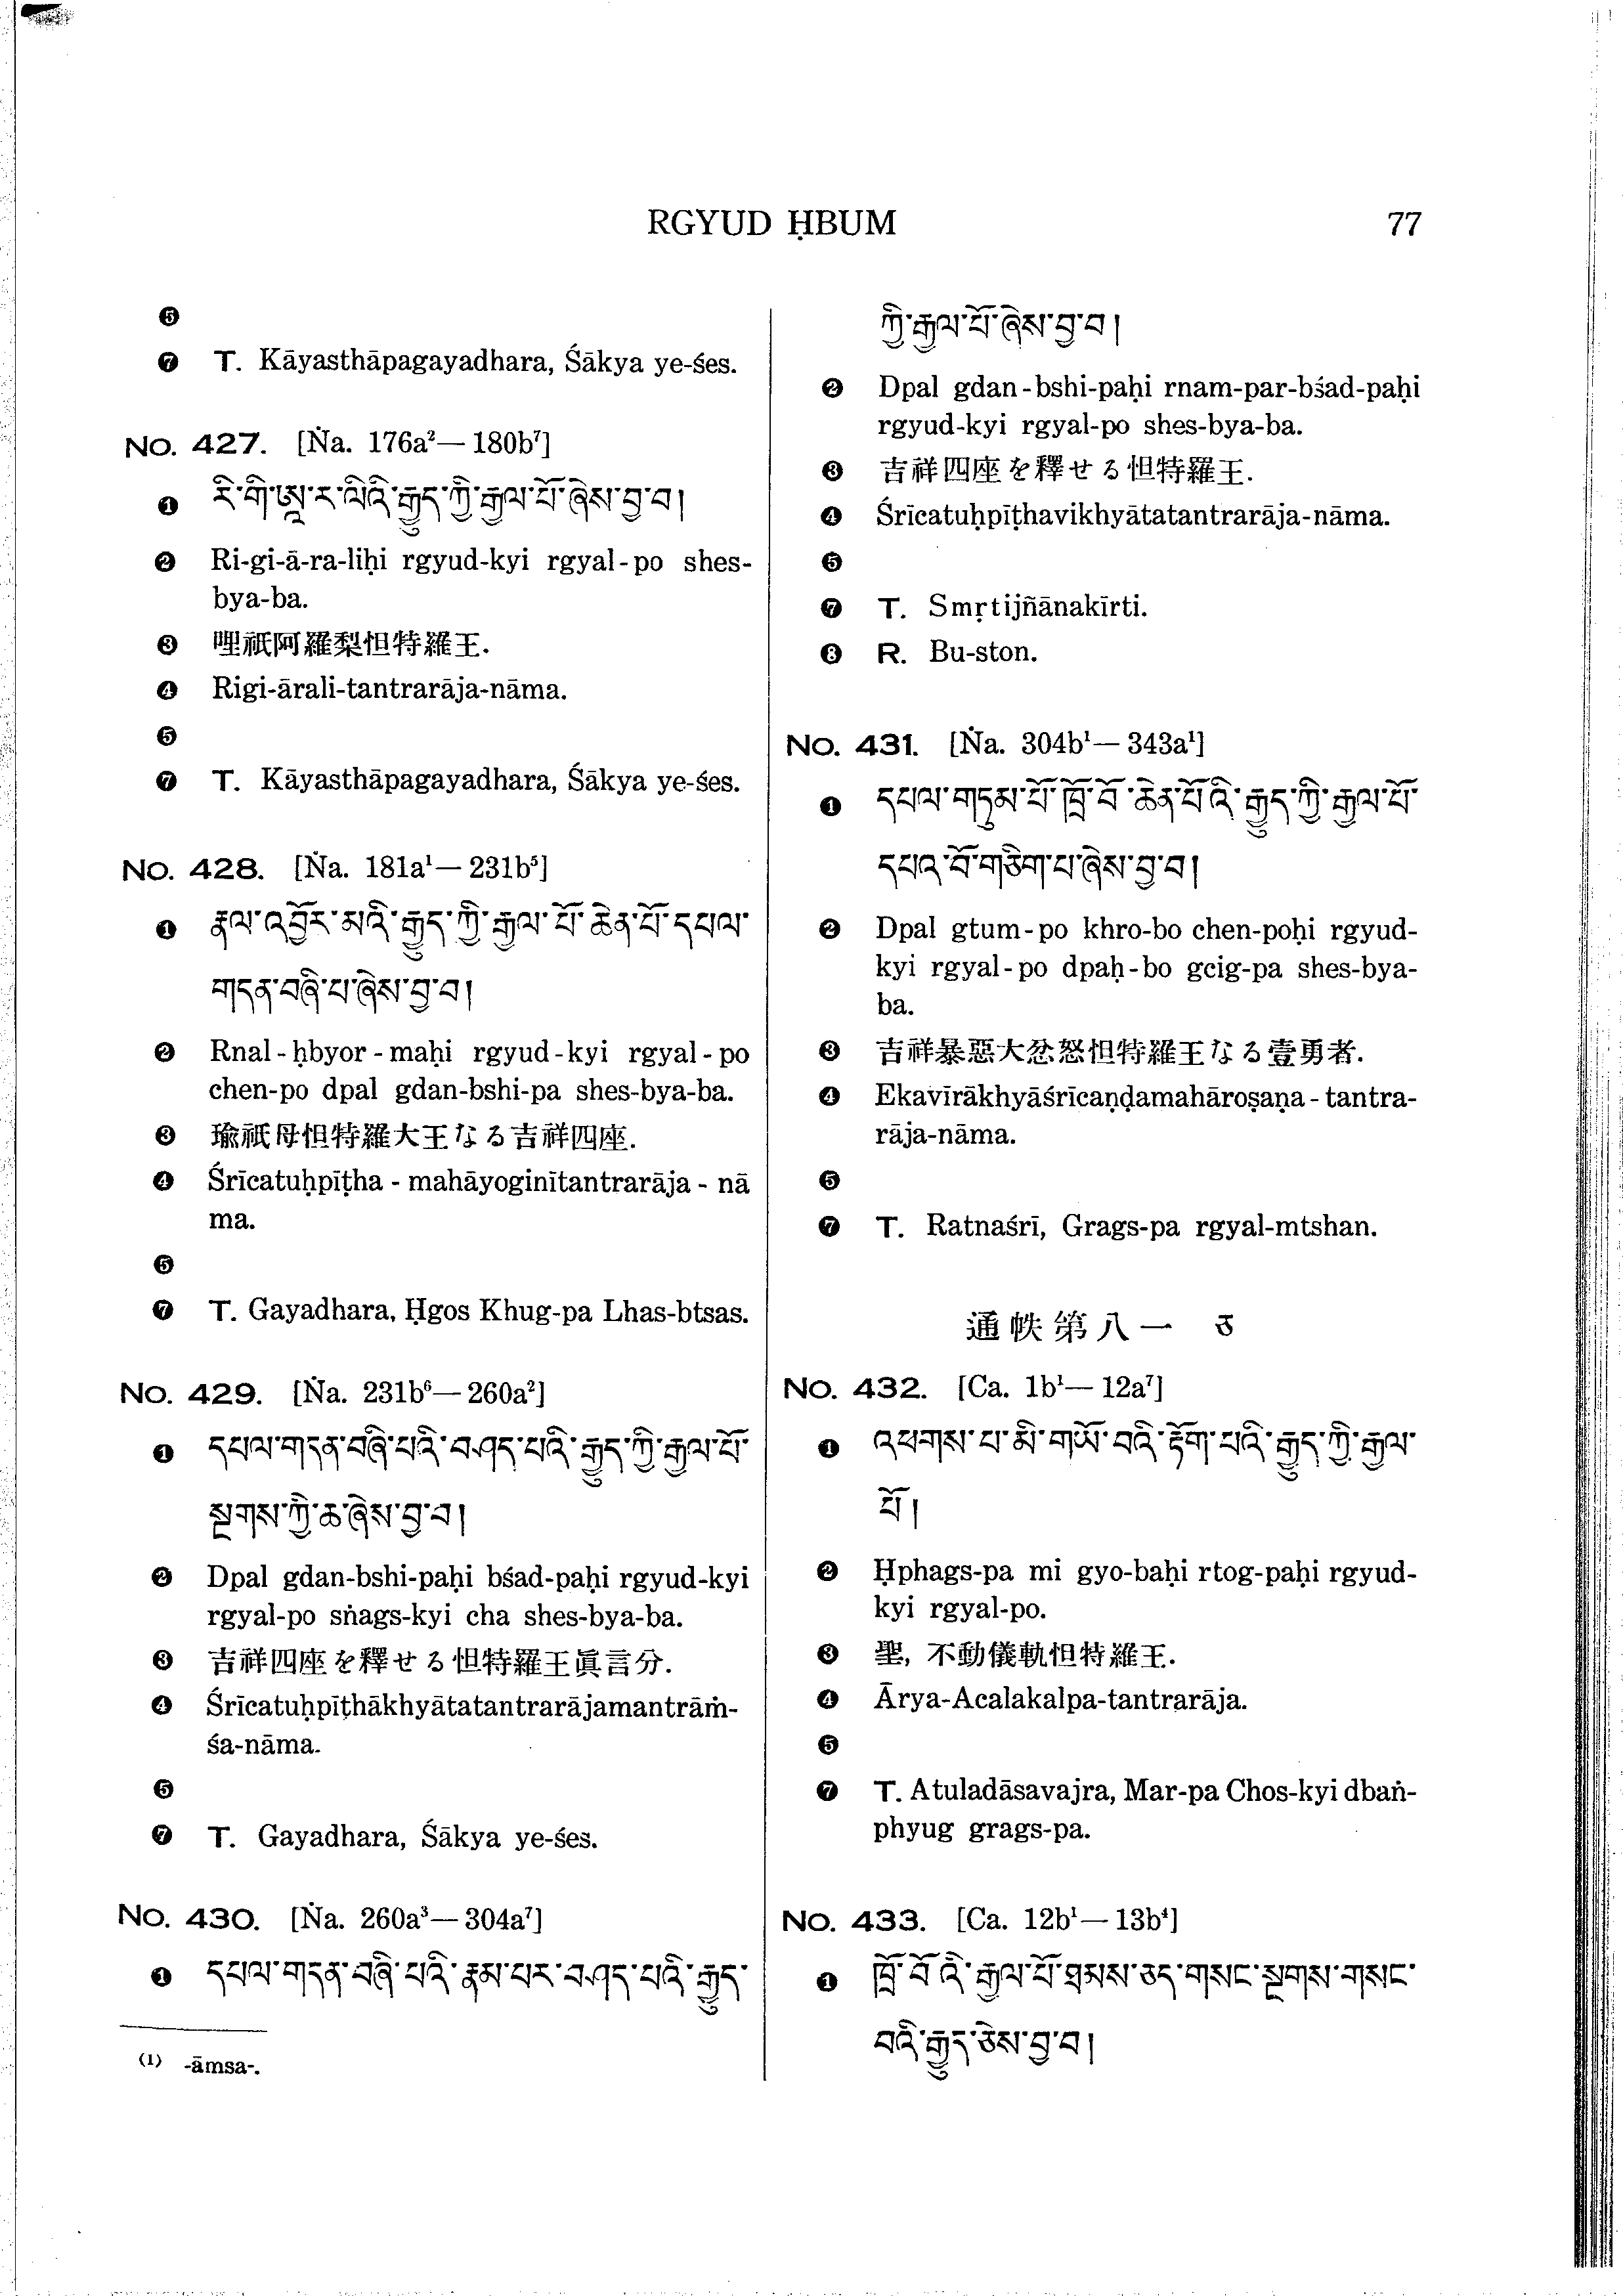 RGYUD ḤBUM
77
❺
❼ T. Kāyasthāpagayadhara, Śākya ye-śes.
No. 427. [Ṅa. 176a²—180b⁷]
❶ རི་གི་ཨཱ་ར་ལིའི་རྒྱུད་ཀྱི་རྒྱལ་པོ་ཞེས་བྱ་བ།
❷ Ri-gi-ā-ra-liḥi rgyud-kyi rgyal-po shes-
bya-ba.
❸ 哩祇阿羅梨怛特羅王.
❹ Rigi-ārali-tantrarāja-nāma.
❺
❼ T. Kāyasthāpagayadhara, Śākya ye-śes.
No. 428. [Ṅa. 181a¹—231b⁵]
❶ རྣལ་འབྱོར་མའི་རྒྱུད་ཀྱི་རྒྱལ་པོ་ཆེན་པོ་དཔལ་
གདན་བཞི་པ་ཞེས་བྱ་བ།
❷ Rnal-ḥbyor-maḥi rgyud-kyi rgyal-po
chen-po dpal gdan-bshi-pa shes-bya-ba.
❸ 瑜祇母怛特羅大王なる吉祥四座.
❹ Śrīcatuḥpīṭha-mahāyoginītantrarāja-nā
ma.
❺
❼ T. Gayadhara, Ḥgos Khug-pa Lhas-btsas.
No. 429. [Ṅa. 231b⁶—260a²]
❶ དཔལ་གདན་བཞི་པའི་བཤད་པའི་རྒྱུད་ཀྱི་རྒྱལ་པོ་
སྔགས་ཀྱི་ཆ་ཞེས་བྱ་བ།
❷ Dpal gdan-bshi-paḥi bśad-paḥi rgyud-kyi
rgyal-po sṅags-kyi cha shes-bya-ba.
❸ 吉祥四座を釋せる怛特羅王眞言分.
❹ Śrīcatuḥpīṭhākhyātatantrarājamantrāṁ-
śa-nāma.
❺
❼ T. Gayadhara, Śākya ye-śes.
No. 430. [Ṅa. 260a³—304a⁷]
❶ དཔལ་གདན་བཞི་པའི་རྣམ་པར་བཤད་པའི་རྒྱུད་
⁽¹⁾ -āmsa-.
ཀྱི་རྒྱལ་པོ་ཞེས་བྱ་བ།
❷ Dpal gdan-bshi-paḥi rnam-par-bśad-paḥi
rgyud-kyi rgyal-po shes-bya-ba.
❸ 吉祥四座を釋せる怛特羅王.
❹ Śrīcatuḥpīṭhavikhyātatantrarāja-nāma.
❺
❼ T. Smṛtijñānakīrti.
❽ R. Bu-ston.
No. 431. [Ṅa. 304b¹—343a¹]
❶ དཔལ་གཏུམ་པོ་ཁྲོ་བོ་ཆེན་པོའི་རྒྱུད་ཀྱི་རྒྱལ་པོ་
དཔའ་བོ་གཅིག་པ་ཞེས་བྱ་བ།
❷ Dpal gtum-po khro-bo chen-poḥi rgyud-
kyi rgyal-po dpaḥ-bo gcig-pa shes-bya-
ba.
❸ 吉祥暴惡大忿怒怛特羅王なる壹勇者.
❹ Ekavīrākhyāśrīcaṇḍamahāroṣaṇa-tantra-
rāja-nāma.
❺
❼ T. Ratnaśrī, Grags-pa rgyal-mtshan.
通帙第八一 ཅ
No. 432. [Ca. 1b¹—12a⁷]
❶ འཕགས་པ་མི་གཡོ་བའི་རྟོག་པའི་རྒྱུད་ཀྱི་རྒྱལ་
པོ།
❷ Ḥphags-pa mi gyo-baḥi rtog-paḥi rgyud-
kyi rgyal-po.
❸ 聖, 不動儀軌怛特羅王.
❹ Ārya-Acalakalpa-tantrarāja.
❺
❼ T. Atuladāsavajra, Mar-pa Chos-kyi dbaṅ-
phyug grags-pa.
No. 433. [Ca. 12b¹—13b⁴]
❶ ཁྲོ་བོའི་རྒྱལ་པོ་ཐམས་ཅད་གསང་སྔགས་གསང་
བའི་རྒྱུད་ཅེས་བྱ་བ།